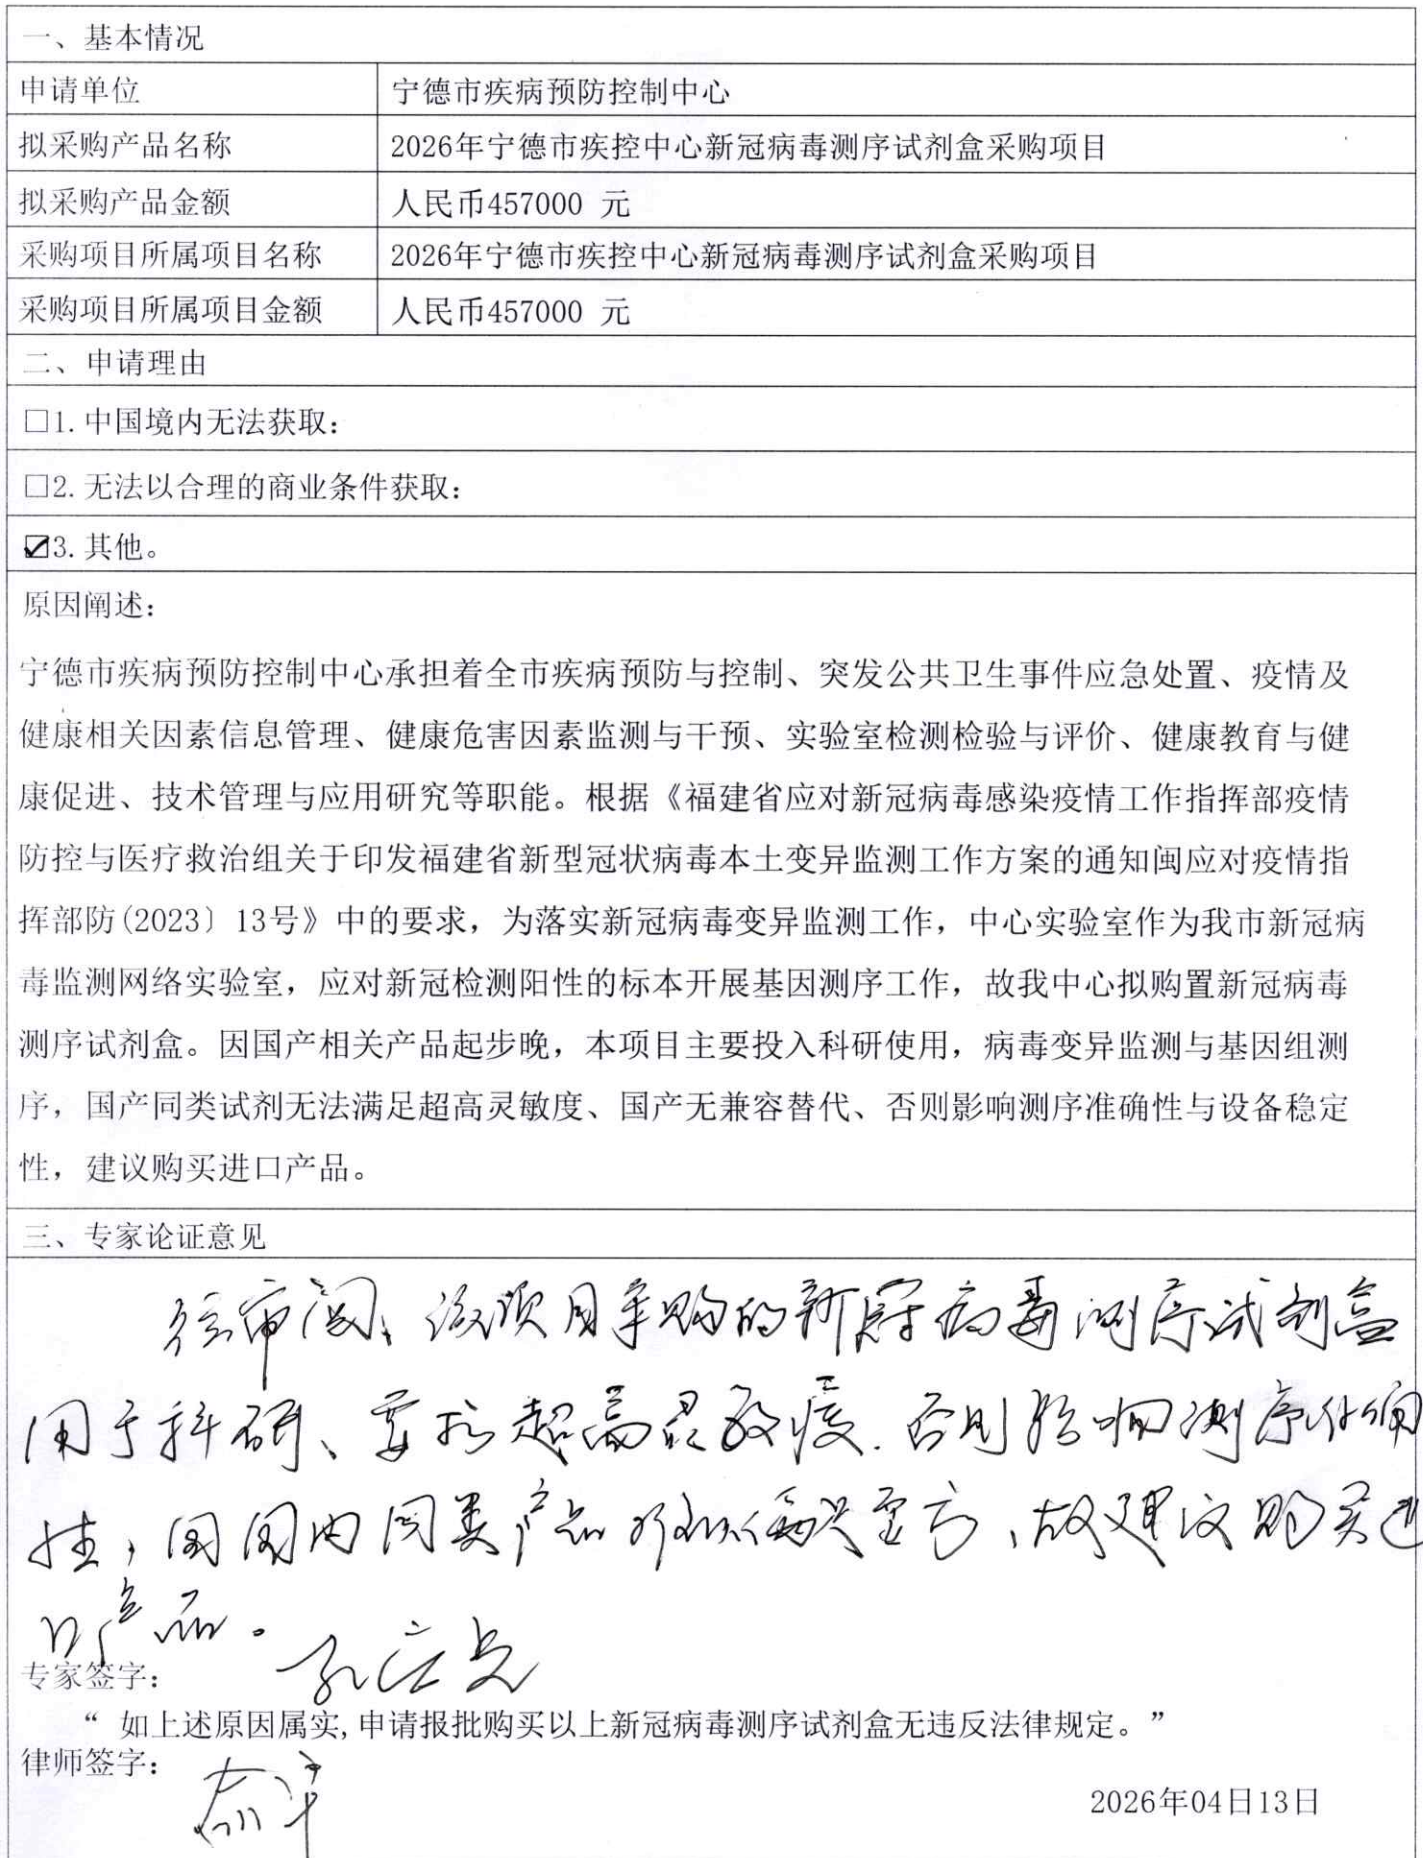 一、基本情况
申请单位 宁德市疾病预防控制中心
拟采购产品名称 2026年宁德市疾控中心新冠病毒测序试剂盒采购项目
拟采购产品金额 人民币457000 元
采购项目所属项目名称 2026年宁德市疾控中心新冠病毒测序试剂盒采购项目
采购项目所属项目金额 人民币457000 元
二、申请理由
□1.中国境内无法获取：
□2.无法以合理的商业条件获取：
☑3.其他。
原因阐述：
宁德市疾病预防控制中心承担着全市疾病预防与控制、突发公共卫生事件应急处置、疫情及
健康相关因素信息管理、健康危害因素监测与干预、实验室检测检验与评价、健康教育与健
康促进、技术管理与应用研究等职能。根据《福建省应对新冠病毒感染疫情工作指挥部疫情
防控与医疗救治组关于印发福建省新型冠状病毒本土变异监测工作方案的通知闽应对疫情指
挥部防(2023〕13号》中的要求，为落实新冠病毒变异监测工作，中心实验室作为我市新冠病
毒监测网络实验室，应对新冠检测阳性的标本开展基因测序工作，故我中心拟购置新冠病毒
测序试剂盒。因国产相关产品起步晚，本项目主要投入科研使用，病毒变异监测与基因组测
序，国产同类试剂无法满足超高灵敏度、国产无兼容替代、否则影响测序准确性与设备稳定
性，建议购买进口产品。
三、专家论证意见
经审阅、该项目采购的新冠病毒测序试剂盒
用于科研、要求超高灵敏度.否则影响测序准确
性，因国内同类产品，故建议购买进
口产品。
专家签字：
“ 如上述原因属实,申请报批购买以上新冠病毒测序试剂盒无违反法律规定。”
律师签字：
2026年04日13日